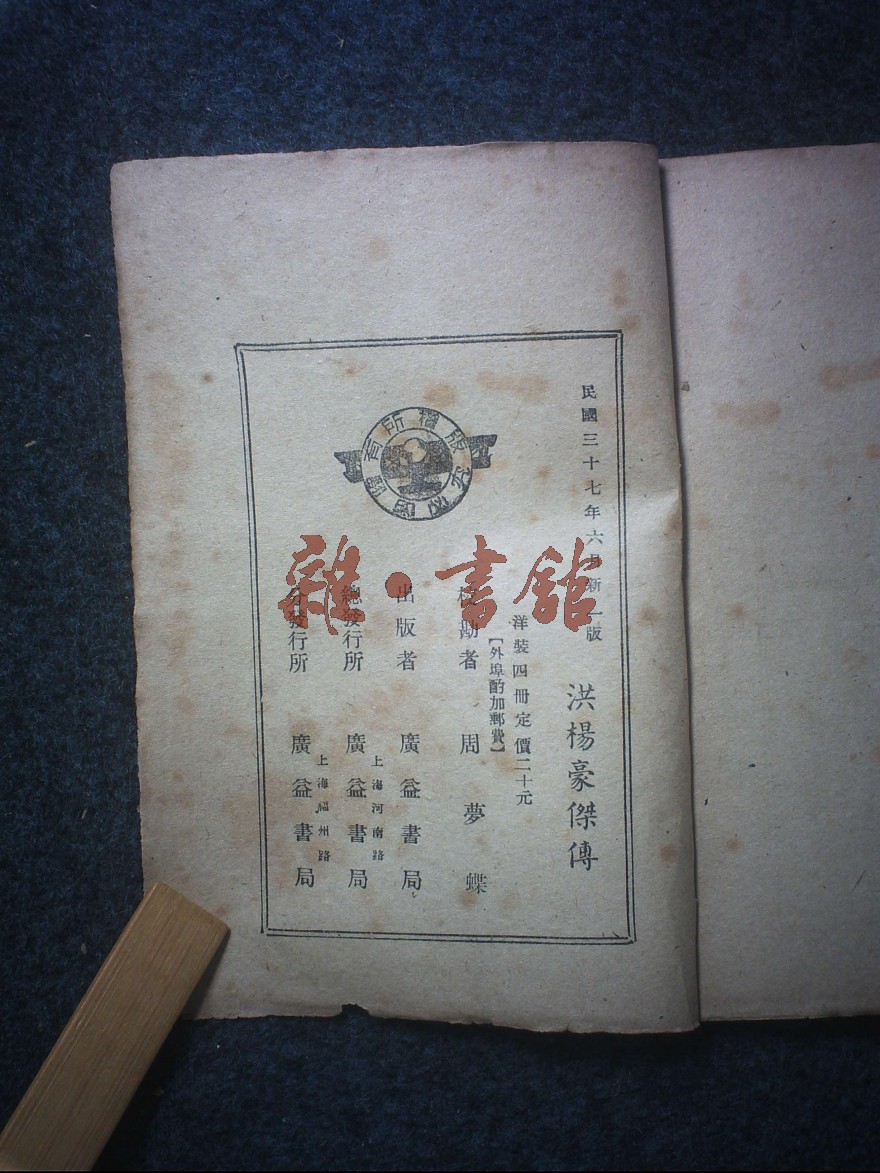 民國三十七年六月新一版
洪楊豪傑傳
洋裝四冊定價二十元
【外埠酌加郵費】
校勘者 周夢蝶
出版者 廣益書局
總發行所 上海河南路 廣益書局
分發行所 上海福州路 廣益書局
版權所有
翻印必究
雜·書館